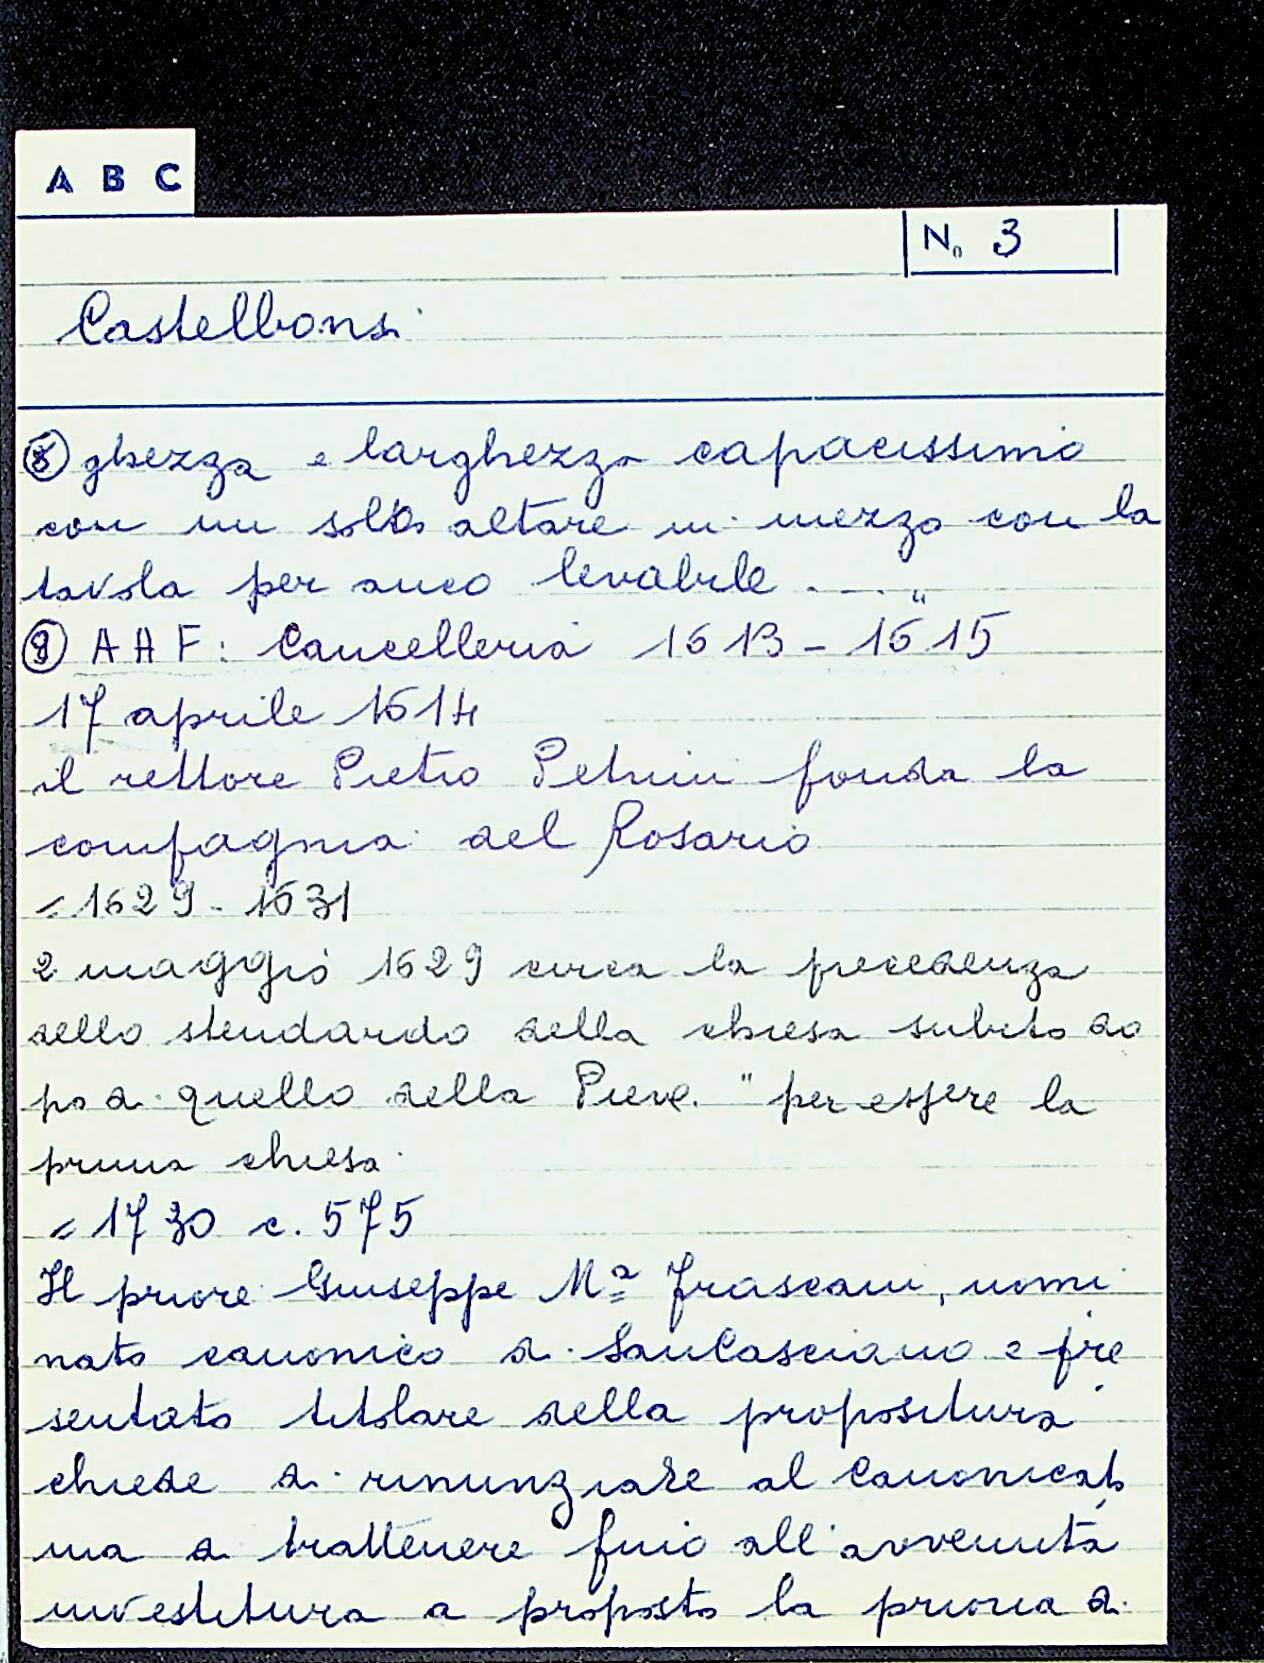 A B C
No 3
Castelbonsi
⑧ ghezza e larghezza capacissimo
con un solo altare in mezzo con la
tavola per anco levabile ...."
⑨ AAF: Cancelleria 1613-1615
17 aprile 1614
il rettore Pietro Petrini fonda la
compagnia del Rosario
= 1629-1631
2 maggio 1629 circa la precedenza
dello stendardo della chiesa subito do
po di quello della Pieve. "per essere la
prima chiesa
= 1730 c. 575
Il priore Giuseppe Mª Frascani, nomi
nato canonico di San Casciano e pre
sentato titolare della propositura
chiede di rinunziare al Canonicato
ma di trattenere fino all'avvenuta
investitura a proposto la prioria di